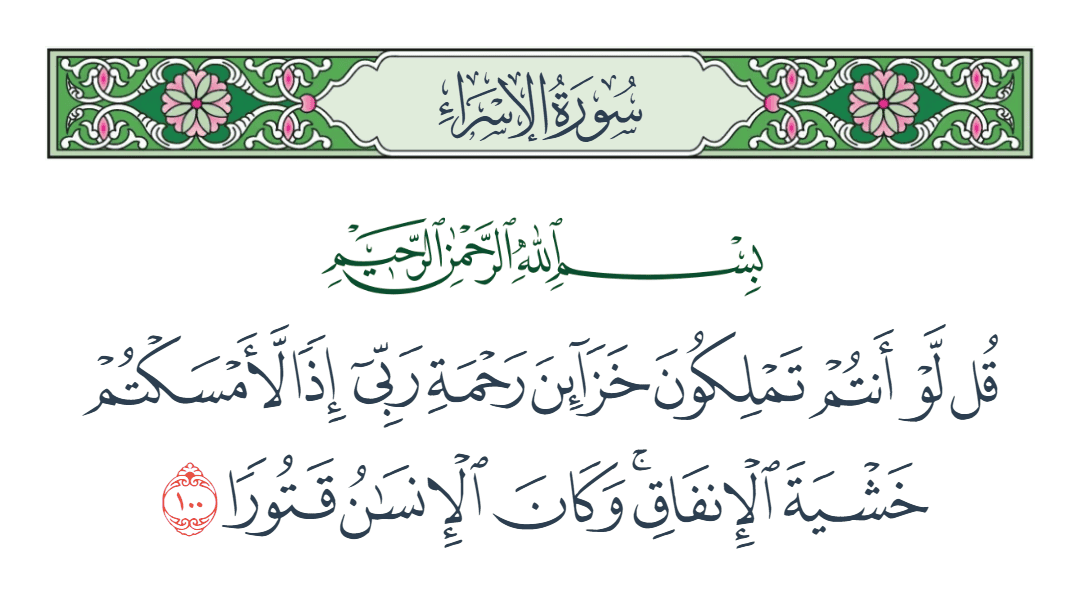 سُورَةُ الإِسْرَاءِ
بِسْمِ ٱللَّهِ ٱلرَّحْمَٰنِ ٱلرَّحِيمِ
قُل لَّوْ أَنتُمْ تَمْلِكُونَ خَزَآئِنَ رَحْمَةِ رَبِّىٓ إِذًا لَّأَمْسَكْتُمْ
خَشْيَةَ ٱلْإِنفَاقِ ۚ وَكَانَ ٱلْإِنسَٰنُ قَتُورًا ١٠٠